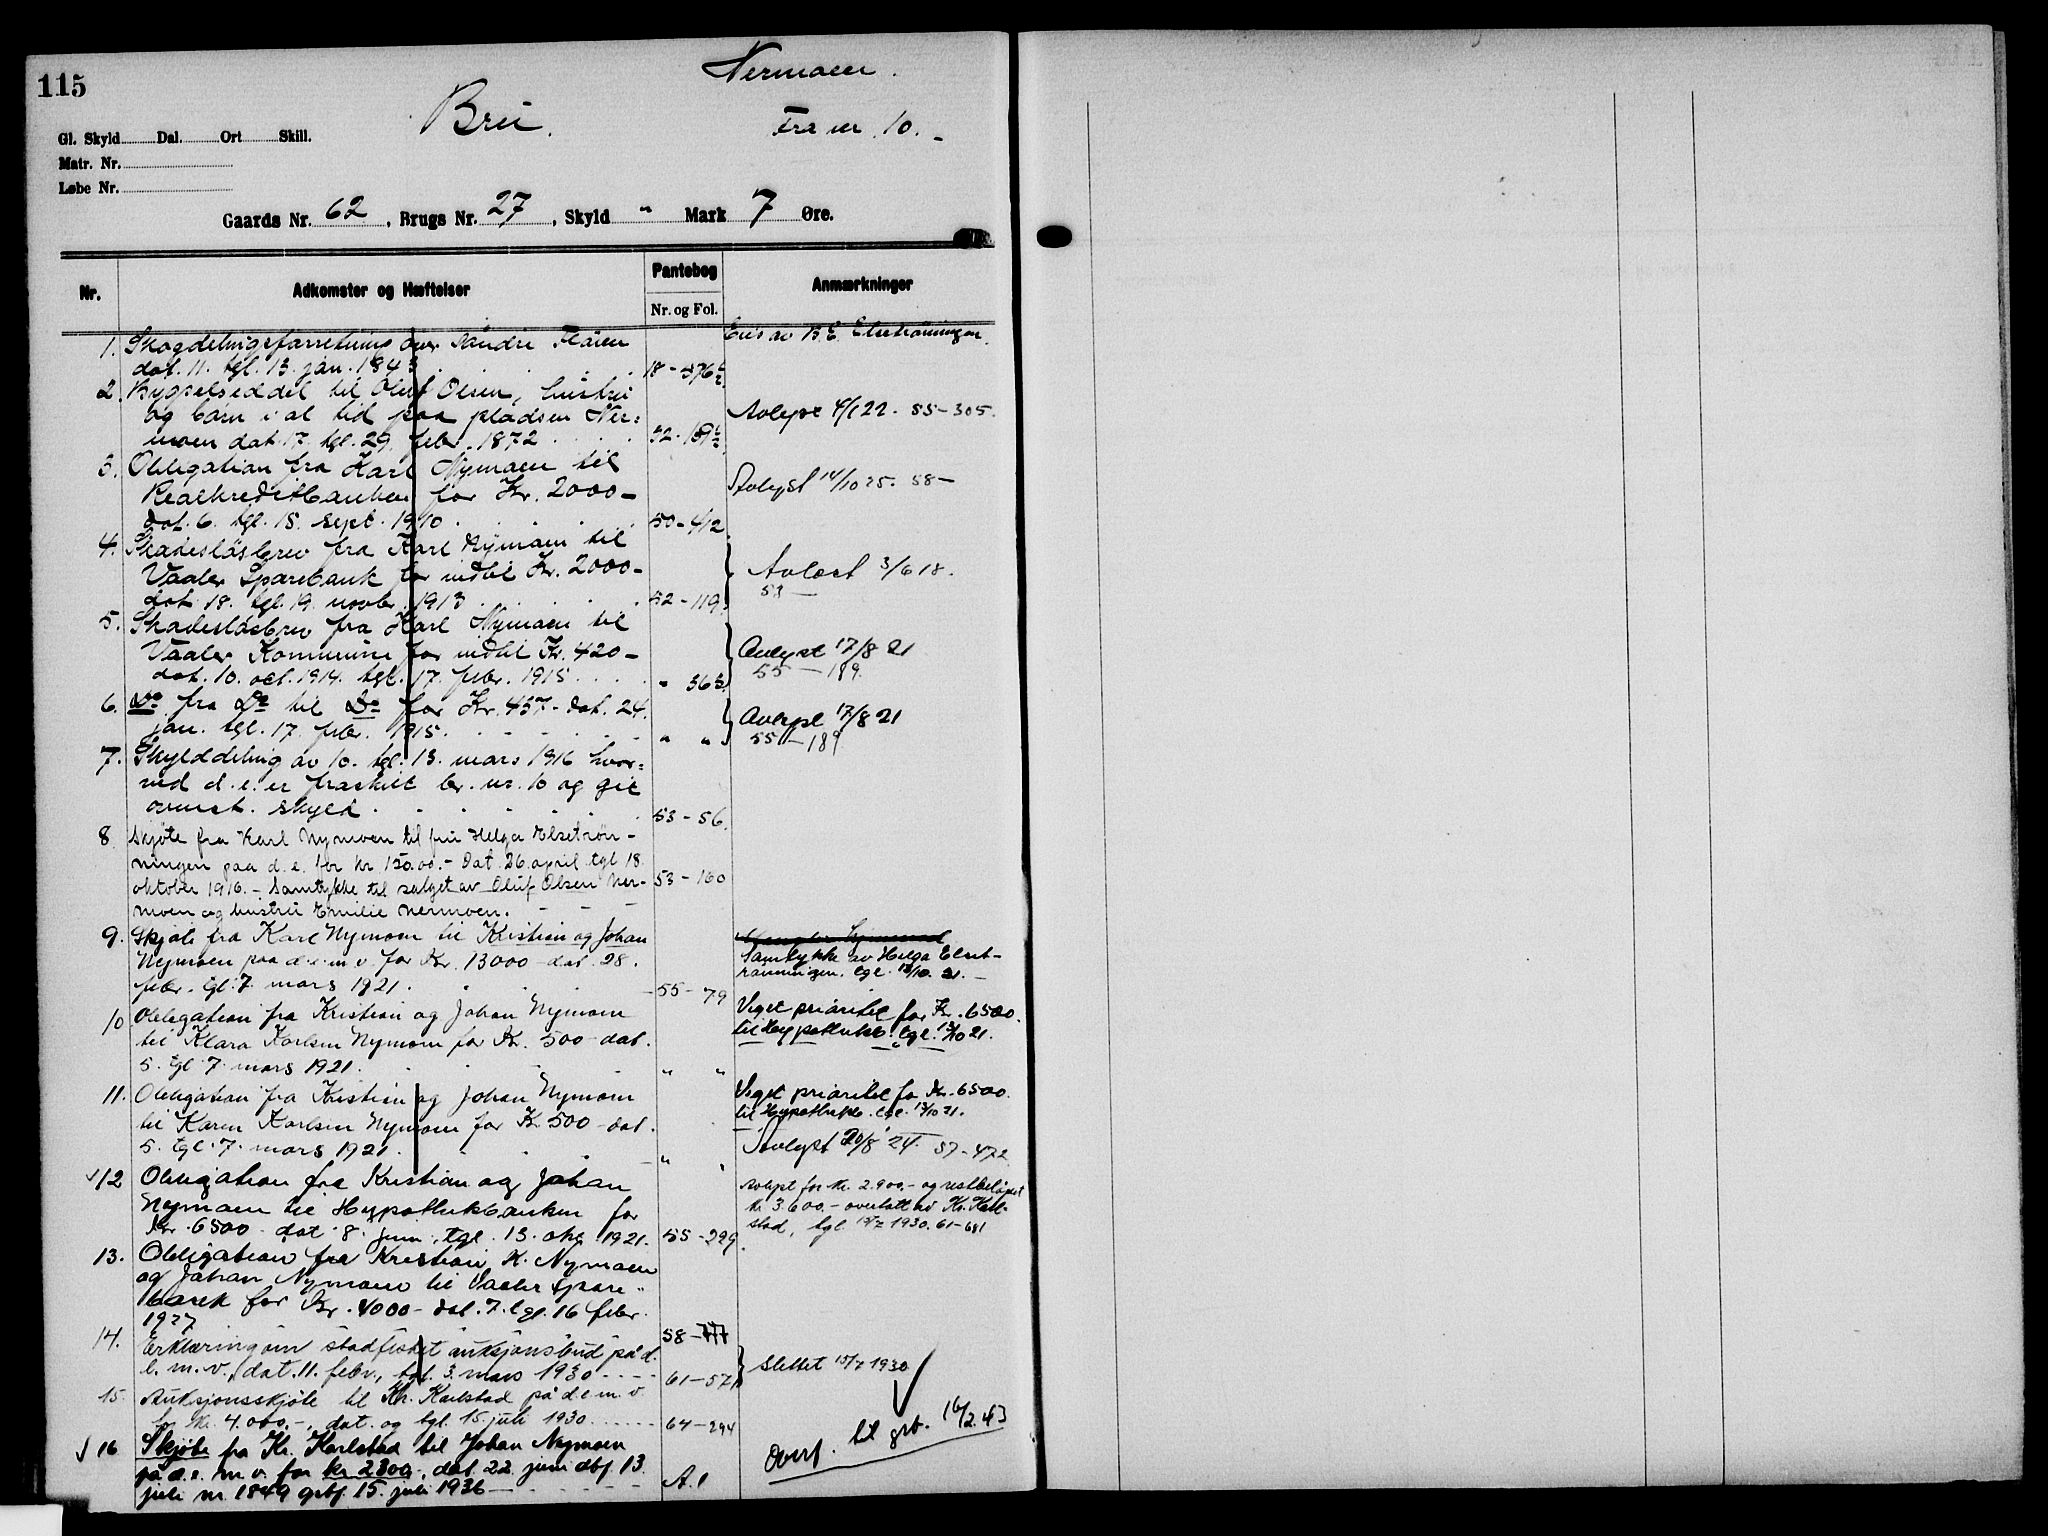 115
Nermoen.
Brei.
Fra nr. 10.
Gl. Skyld Dal. Ort Skill.
Matr. Nr.
Løbe Nr.
Gaards Nr. 62, Brugs Nr. 27, Skyld " Mark 7 Øre.
Nr. Adkomster og Hæftelser Pantebog Anmærkninger
Nr. og Fol.
1. Skogdelingsforretning over søndre Flåien Eies av B.E. Elsetrønningen.
dat. 11. tgl. 13. jan. 1843 18-376
2. Bygselseddel til Oluf Olsen, hustru
og børn i al tid paa pladsen Ner- Avlyst 4/1 22. 55-305.
moen dat. 17. tgl. 29. febr. 1872 32-169
3. Obligation fra Karl Nymoen til
Realkreditbanken for Kr. 2000- Avlyst 14/10 25. 58-
dat. 6. tgl. 15. sept. 1910. 50-412
4. Skadesløsbrev fra Karl Nymoen til
Vaaler Sparebank for indtil Kr. 2000- Avløst 3/6 18.
dat. 18. tgl. 19. novbr. 1913 52-119. 53-
5. Skadesløsbrev fra Karl Nymoen til
Vaaler Kommune for indtil Kr. 420- Avlyst 17/8 21
dat. 10. oct. 1914. tgl. 17. febr. 1915. " 363. 55-189.
6. Do fra Do til Do for Kr. 457- dat. 24. Avlyst 17/8 21
jan. tgl. 17. febr. 1915. " " 55-189
7. Skylddeling av 10. tgl. 13. mars 1916 hvor-
ved d.e. er fraskilt br. nr. 10 og git
ovennt. skyld. 53-56.
8. Skjøte fra Karl Nymoen til fru Helga Elsetrøn-
ningen paa d.e. for kr 150.00.- Dat. 26. april tgl 18.
oktober 1916. - Samtykke til salget av Oluf Olsen Ner- 53-160
moen og hustru Emilie Nermoen.
9. Skjøte fra Karl Nymoen til Kristian og Johan
Nymoen paa d.e.m.v. for Kr. 13000- dat. 28. Samtykke av Helga Elset-
rønningen. tgl. 13/10 21.-
febr. tgl. 7. mars 1921. 55-79
10 Obligation fra Kristian og Johan Nymoen Viget prioritet for Kr. 6500.
til Klara Karlsen Nymoen for Kr. 500- dat. til Hypothekb. tgl. 13/10 21.
5. tgl 7. mars 1921. " "
11. Obligation fra Kristian og Johan Nymoen Viget prioritet for Kr. 6500.
til Hypothekb. tgl. 13/10 21.
til Karen Karlsen Nymoen for Kr 500- dat.
5. tgl. 7. mars 1921. " " Avlyst 20/8 24. 57-472
12 Obligation fra Kristian og Johan Avlyst for kr. 2.900.- og restbeløpet
Nymoen til Hypothekbanken for kr. 3.600.- overtatt av Kr. Karl-
Kr. 6500- dat. 8. juni, tgl. 13. okt. 1921. 55-229. stad, tgl. 15/7 1930. 61-681
13. Obligation fra Kristian K. Nymoen
og Johan Nymoen til Vaaler Spare-
bank for Kr. 4000- dat. 7. tgl. 16 febr.
1927 58-777
14. Erklæring om stadfestet auksjonsbud på d.
e. m. v., dat. 11. febr., tgl. 3. mars 1930 61-571 slettet 15/7 1930
15. Auksjonsskjøte til Kr. Karlstad på d.e.m.v.
for kr. 4.000,-, dat. og tgl. 15. juli 1930. 64-294
16 Skjøte fra Kr. Karlstad til Johan Nymoen Overf. til grb. 16/2. 43
på d.e. m v. for kr 2300-, dat. 22. juni dbf. 13.
juli nr. 1849 grbf. 15. juli 1936- A. 1